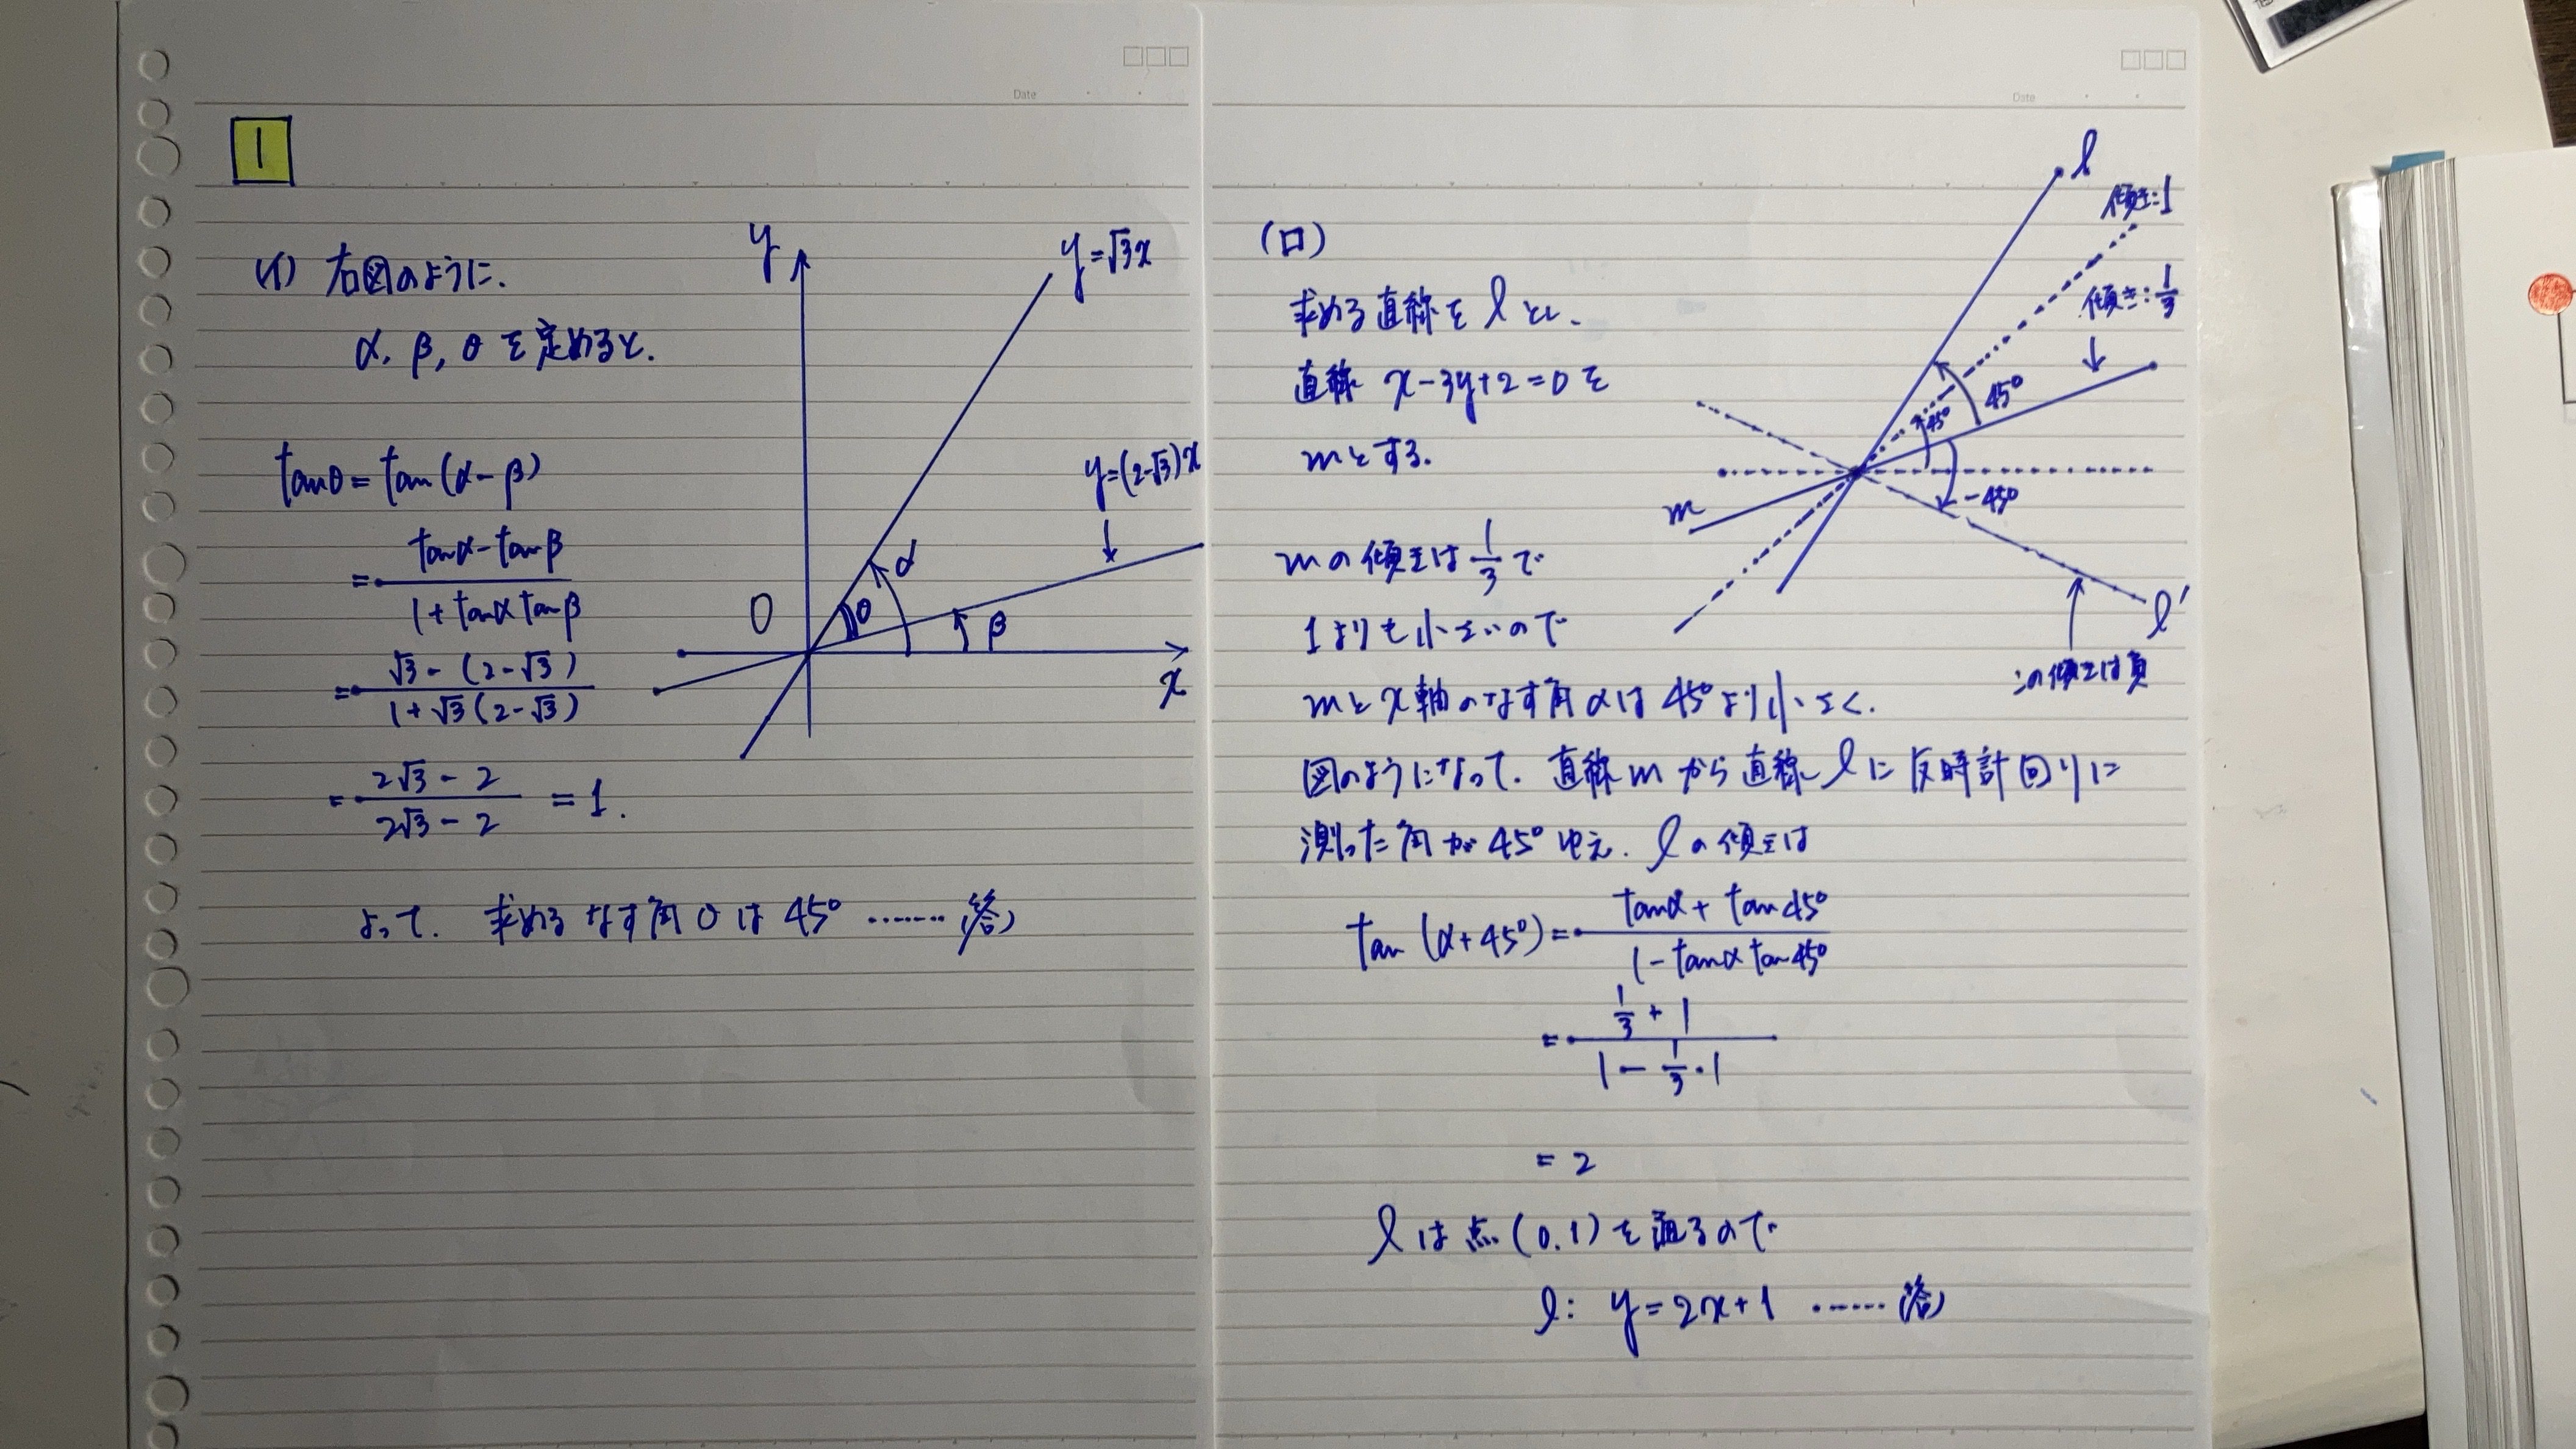 Date
1
(イ) 右図のように、
α, β, θ を定めると、
tanθ = tan(α-β)
= (tanα - tanβ)/(1 + tanα tanβ)
= (√3 - (2-√3))/(1 + √3(2-√3))
= (2√3 - 2)/(2√3 - 2) = 1.
よって、求めるなす角θは 45° ……(答)
y
y=√3x
y=(2-√3)x
α
θ
β
O
x
Date
(ロ)
求める直線を l とし、
直線 x-3y+2=0 を
m とする.
m の傾きは 1/3 で
1よりも小さいので
m と x 軸のなす角αは 45°より小さく、
図のようになって、直線 m から直線 l に反時計回りに
測った角が 45° ゆえ、l の傾きは
tan(α+45°) = (tanα + tan45°)/(1 - tanα tan45°)
= (1/3 + 1)/(1 - 1/3・1)
= 2
l は点 (0,1) を通るので
l: y=2x+1 ……(答)
l
傾き:1
傾き:1/3
45°
45°
-45°
m
l'
この傾きは負